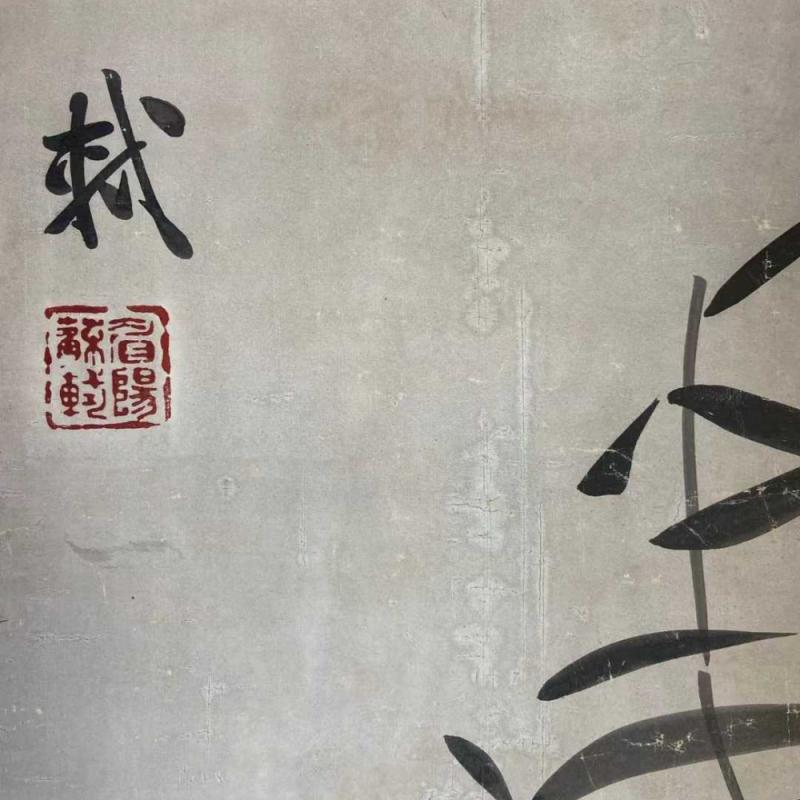 軾
眉陽
蘇軾